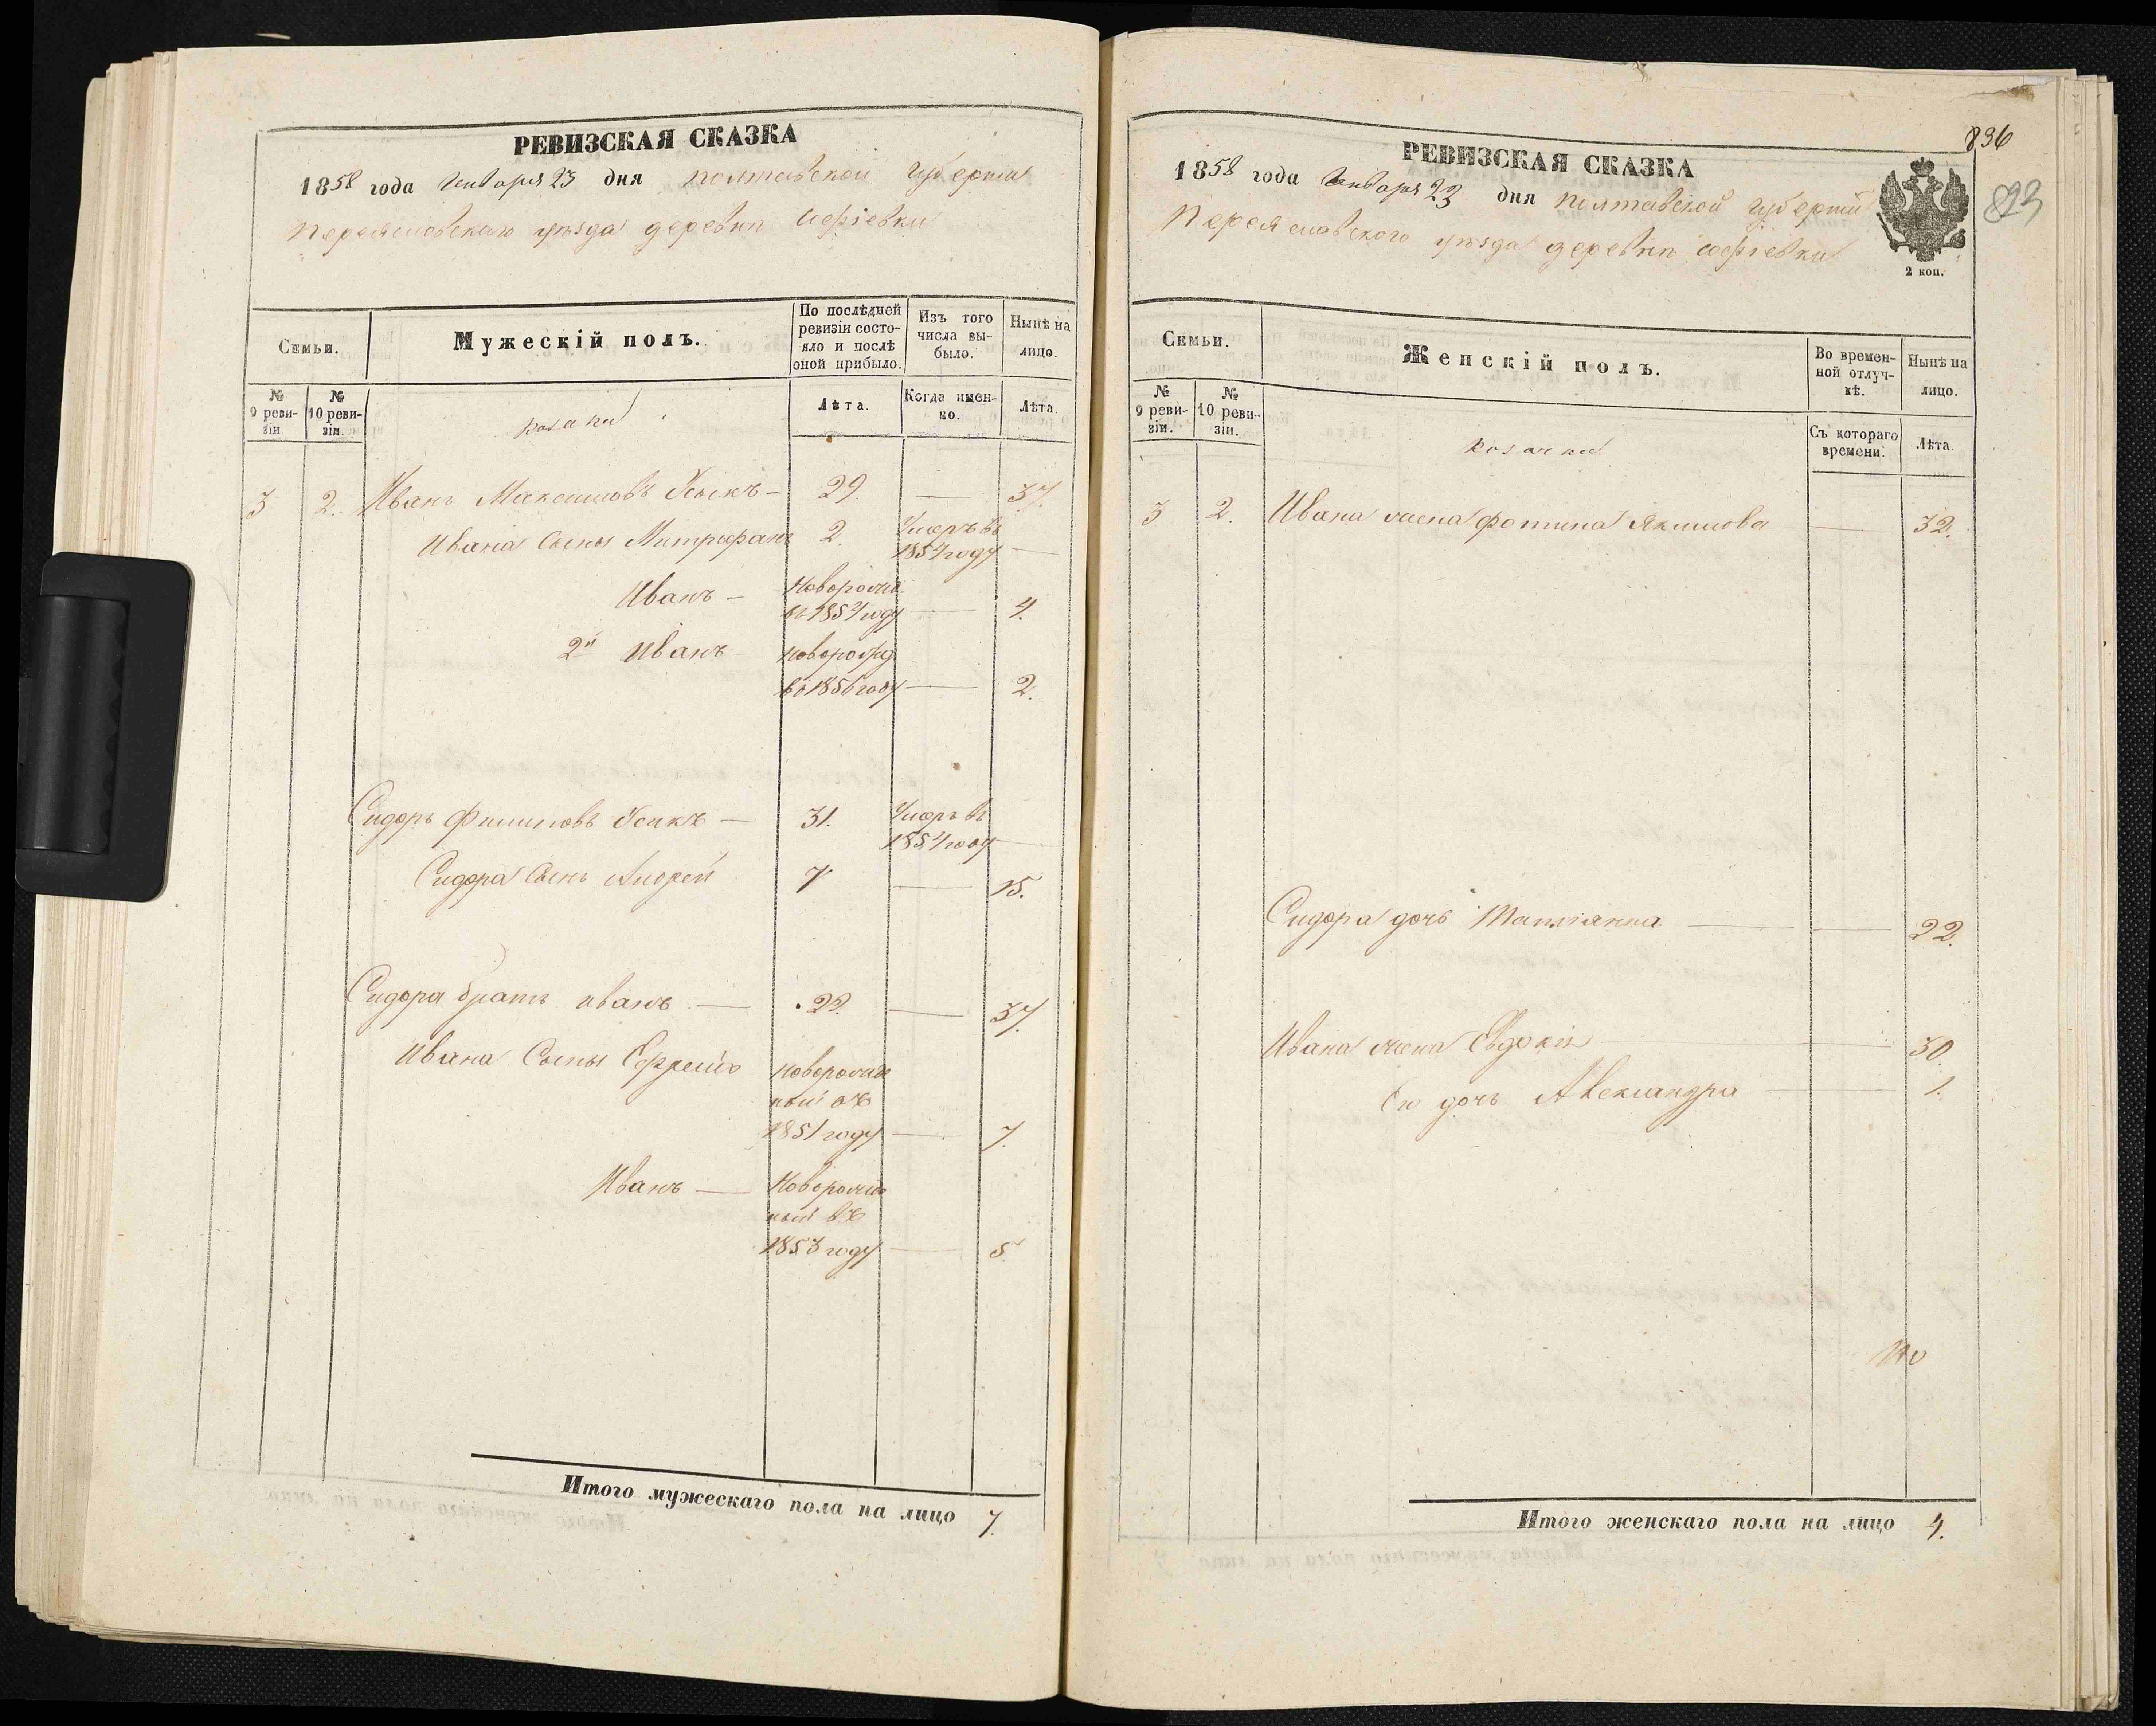 РЕВИЗСКАЯ СКАЗКА
1858 года Января 23 дня Полтавской Губерніи
Переяславского уѣзда деревни Софіевки
Семьи.
Мужескій полъ.
По послѣдней ревизіи состояло и послѣ оной прибыло.
Изъ того числа выбыло.
Нынѣ на лицо.
№ 9 ревизіи
№ 10 ревизіи.
козаки
Лѣта.
Когда именно.
Лѣта.
3 2. Иванъ Максимовъ Усикъ — 29. — 37.
Ивана Сыны Митрофанъ 2. Умеръ въ 1854 году —
Иванъ — Новорожд. въ 1854 году — 4.
2й Иванъ новорожд въ 1856 году — 2.
Сидоръ Филиповъ Усикъ — 31. Умеръ въ 1854 году —
Сидора Сынъ Андрей 7 — 15.
Сидора братъ иванъ — 22. — 37.
Ивана Сыны Ефремъ новорожденный въ 1851 году — 7.
Иванъ — Новорожденный въ 1853 году — 5.
Итого мужескаго пола на лицо 7.
836
823
РЕВИЗСКАЯ СКАЗКА
1858 года Января 23 дня Полтавской Губерніи
Переяславского уѣзда деревни Софіевки
2 коп.
Семьи.
Женскій полъ.
Во временной отлучкѣ.
Нынѣ на лицо.
№ 9 ревизіи.
№ 10 ревизіи.
козачки
Съ котораго времени.
Лѣта.
3 2. Ивана жена Фотина Якимова — 32.
Сидора дочь Татіанна — — 22.
Ивана жена Евдокія — 30.
Ею дочь Александра — 1.
Итого женскаго пола на лицо 4.